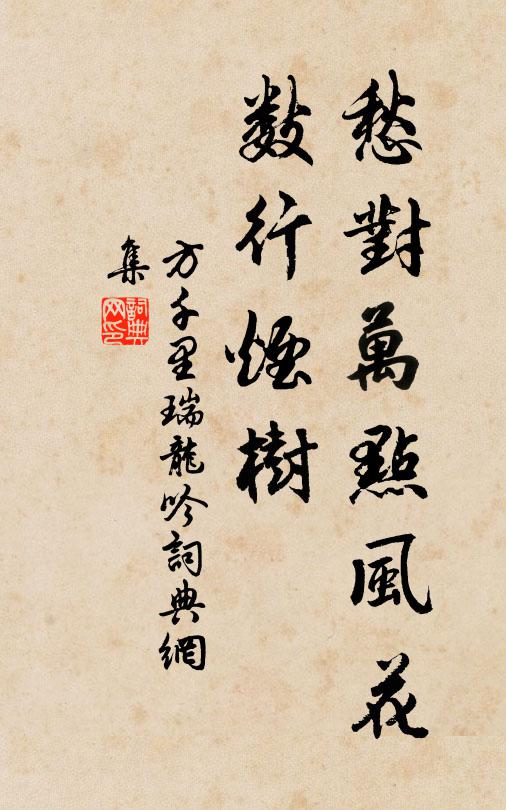 愁對萬點風花
數行煙樹
方千里瑞龍吟詞典網
集
詞典
网印